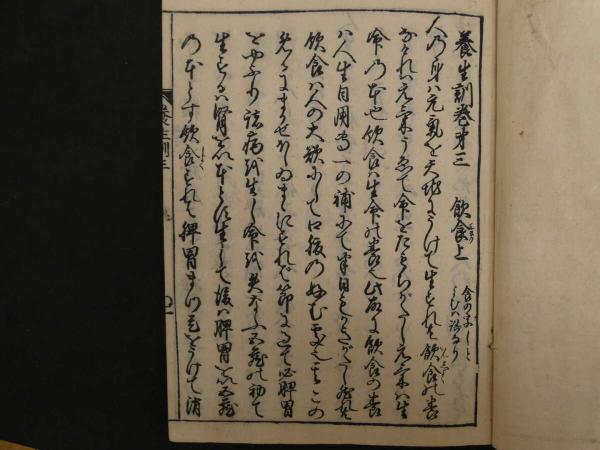 養生訓巻第三 飲食上 食のましと よむハ誤なり
人乃身ハ元気を天地にうけて生ずれ共飲食の養
なけれハ元気うゑて命をたもちがたし元気ハ生
命乃本也飲食ハ生命の養也此故に飲食の養
ハ人生日用専一の補にて半日もかきがたし然れ共
飲食ハ人の大欲にして口腹乃好む処也其この
めるにまかせほしゐまゝにすれば節に過て必脾胃
をやぶり諸病を生し命を失ふ五臓の初て
生ずるハ腎を以本とす生して後ハ脾胃を以五臓
の本とす飲食すれは脾胃まづ是をうけて消
養生訓三